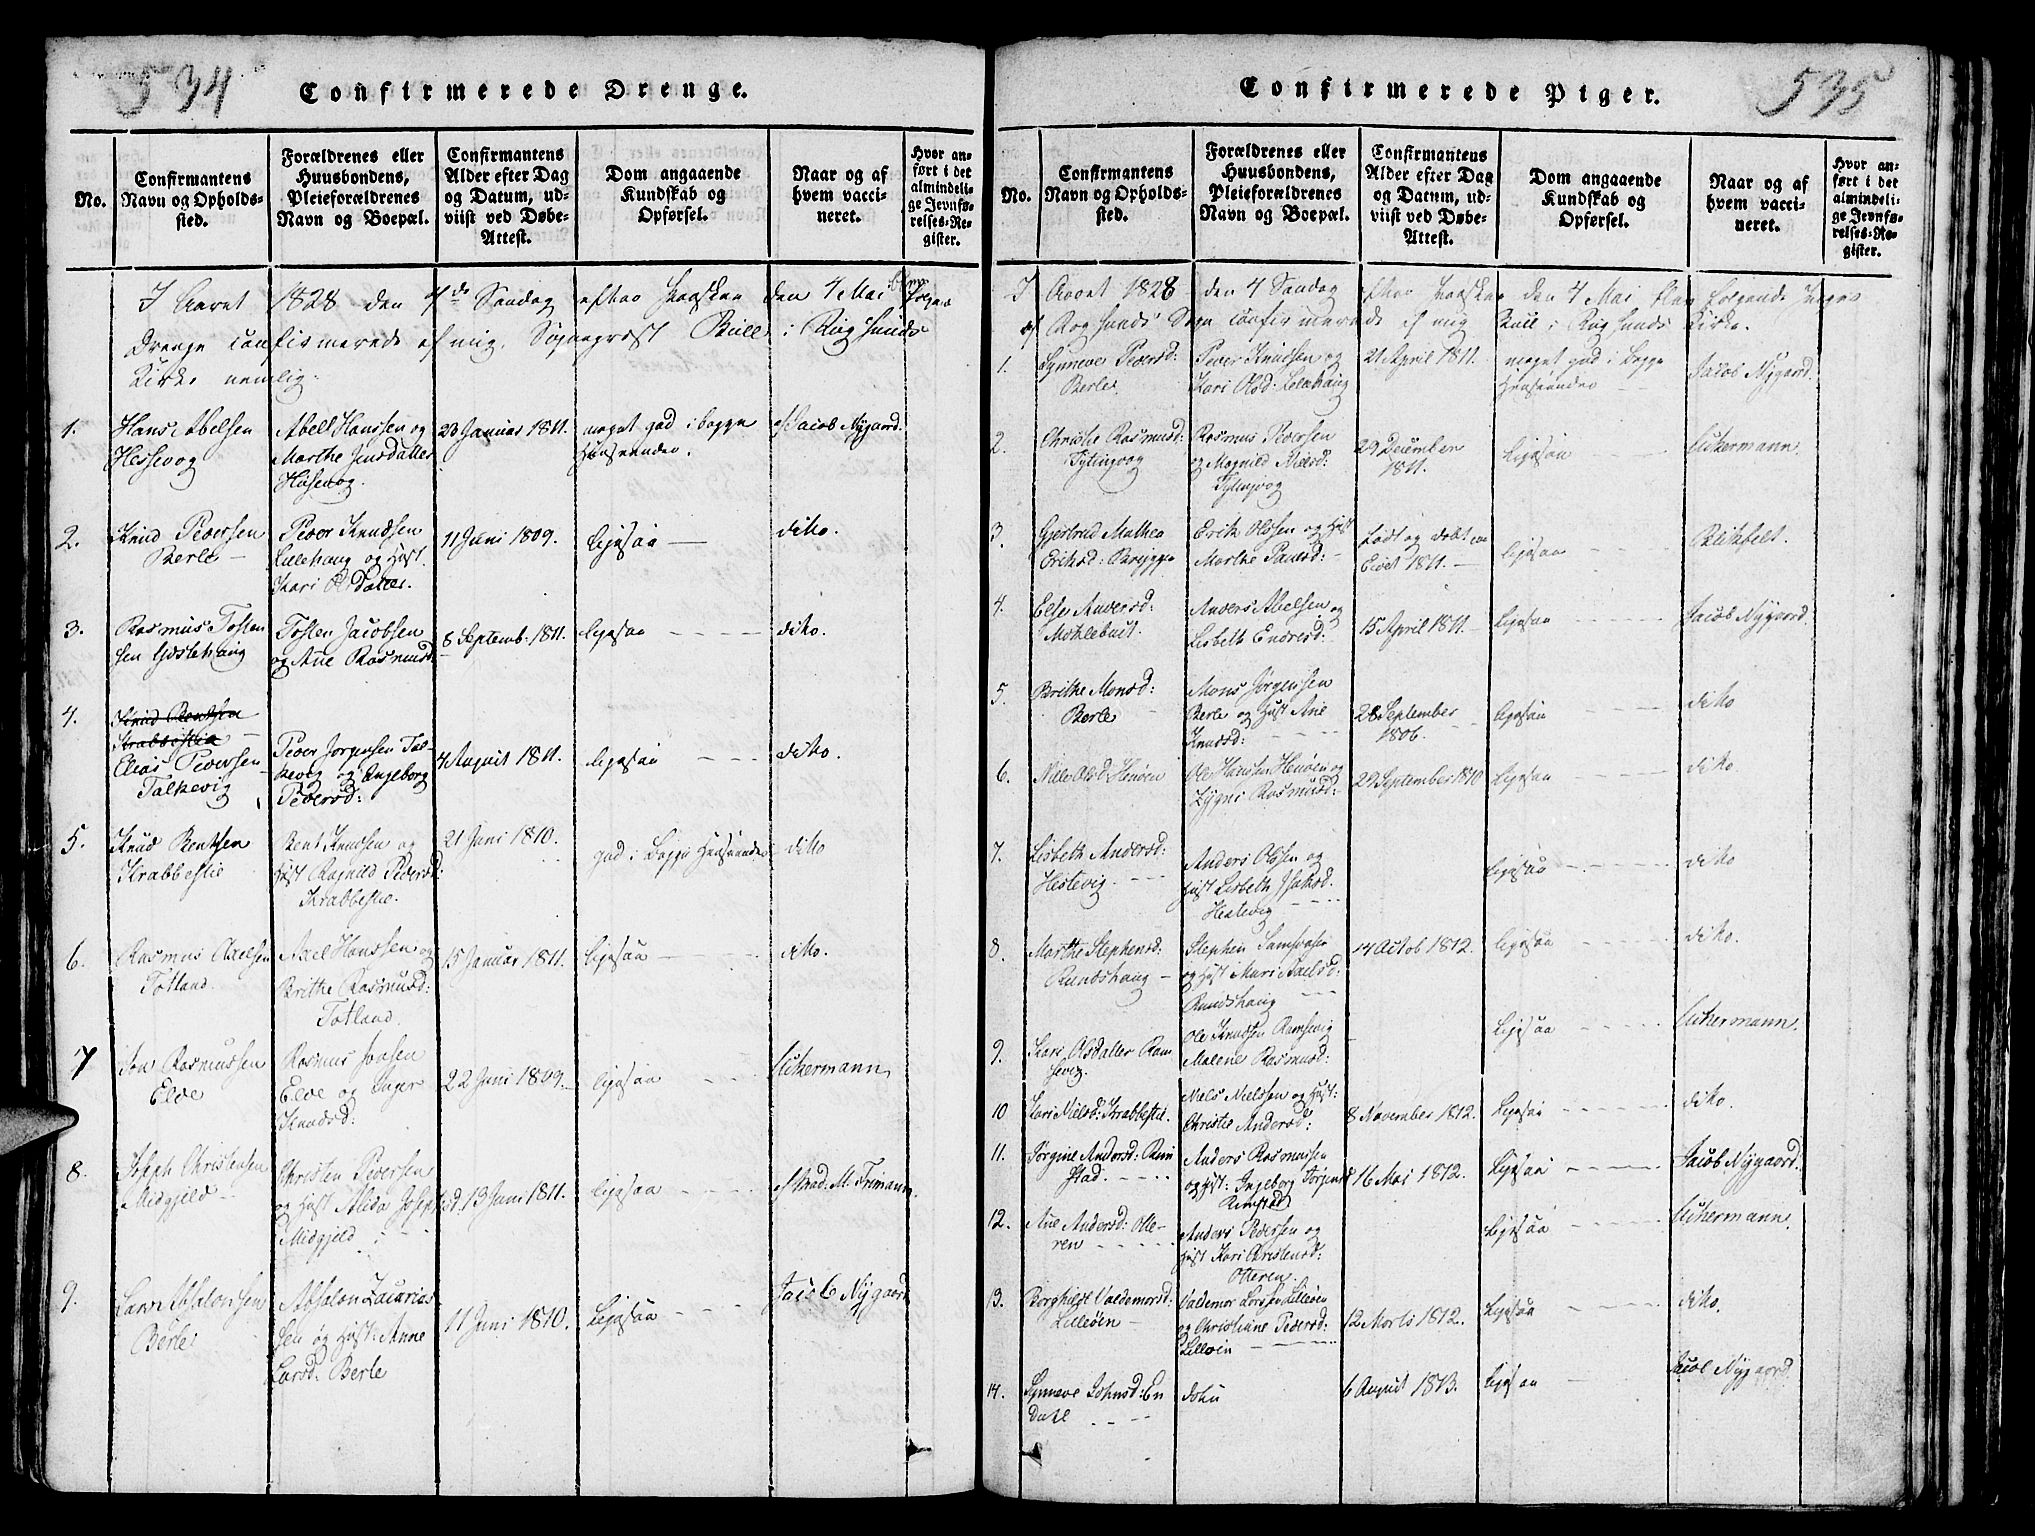 534
Confirmerede Drenge.
No.
Confirmantens
Navn og Opholds-
sted.
Forældrenes eller
Huusbondens,
Pleieforældrenes
Navn og Boepæl.
Confirmantens
Alder efter Dag
og Datum, ud-
viist ved Døbe-
Attest.
Dom angaaende
Kundskab og
Opførsel.
Naar og af
hvem vacci-
neret.
Hvor an-
ført i det
almindeli-
ge Jevnfø-
relses-Re-
gister.
I Aaret 1828 den 4de Søndag efter Paasken den 4 Mai blev følgen
Drenge confirmerede af mig, Sognepræst Bull i Rugsunds
Kirke nemlig:
1.
Hans Abelsen
Hessevog
Abell Hanssen og
Marthe Jensdatter
23 Januar 1811.
meget god i begge
Hensender.
af Jacob Nygaard.
2.
Knud Pedersen
Berle
Peder Knudsen
Lillehaug og Hust.
Kari Olsdatter.
11 Juni 1809.
ligesaa
dito.
3.
Rasmus Tosten
sen
Tosten Jacobsen
og Ane Rasmusd:
8 Septemb: 1811.
ligesaa
dito.
4.
Knud Bentsen
Krabbestie
Elias Pedersen
Talkevig
Peder Jørgensen Tal-
kevig og Ingeborg
Pedersd:
4 August 1811.
ligesaa
dito.
5.
Knud Bentsen
Krabbestie
Bent Knudsen og
Hust Ragnild Pedersd:
Krabbestie.
21 Juni 1810.
god i begge Hensender
dito
6.
Rasmus Axelsen
Totland.
Axel Hanssen og
Brithe Rasmusd:
Totland.
15 Januar 1811.
ligesaa
dito.
7
Jon Rasmussen
Elde
Rasmus Jonsen
Elde og Inger
Knudsd:
22 Juni 1809.
ligesaa
Uchermann
8.
Joseph Christensen
Midgjeld
Christen Pedersen
og Hust Alida Josephsd.
Midgjeld
13 Juni 1811.
ligesaa
af Mad. M. Frimann.
9.
Lars Absalonsen
Berle
Absalon Zacarias
sen og Hust: Anne
Larsd: Berle
11 Juni 1810.
ligesaa
Jacob Nygaard
535
Confirmerede Piger.
No.
Confirmantens
Navn og Opholds-
sted.
Forældrenes eller
Huusbondens,
Pleieforældrenes
Navn og Boepæl.
Confirmantens
Alder efter Dag
og Datum, ud-
viist ved Døbe-
Attest.
Dom angaaende
Kundskab og
Opførsel.
Naar og af
hvem vacci-
neret.
Hvor an-
ført i det
almindeli-
ge Jevnfø-
relses-Re-
gister.
I Aaret 1828 den 4 Søndag efter Paasken den 4 Mai blev følgende Piger
af Rugsunds Sogn confirmerede af mig Bull i Rugsunds Kirke.
1.
Synneve Pedersd:
Berle.
Peder Knudsen og
Kari Olsd: Lillehaug
21 April 1811.
meget god i begge
Hensender
Jacob Nygaard.
2.
Christie Rasmusd:
Tytingvog
Rasmus Pedersen
og Magnild Nielsd:
Tytingvog
29 December
1811.
ligesaa
Uchermann.
3.
Gjertrud Mathea
Eriksd:
Erik Olssen og Hust
Marthe Paulsd:
født og døbt
Eivet 1811.
ligesaa
Blikfelt.
4.
Else Andersd:
Mohlebust.
Anders Abelsen og
Lisbeth Endresd:
15 April 1811.
ligesaa
Jacob Nygaard
5
Brithe Monsd:
Berle
Mons Jørgensen
Berle og Hust Ane
Knudsd:
28 September
1806.
ligesaa
dito
6.
Nille Olsd. Henøen
Ole Hanssen Henøen og
Rasmusd:
29 September 1810
ligesaa
dito
7.
Lisbeth Andersd:
Hestevig.
Anders Olssen og
Hust Lisbeth Isaksd.
Hestevig
ligesaa
dito
8.
Marthe Stephensd:
Rundshaug
Stephen Samsonsen
og Hust Mari Axelsd:
Rundshaug
14 Octob 1812.
ligesaa
dito.
9.
Kari Olsdatter Ram
sevig
Ole Knudsen Ramsevig
Malene Rasmusd:
ligesaa
Uchermann.
10
Kari Nielsd: Krabbestie.
Niels Nielssen og Hust:
Christie Andersd:
8 November 1812.
ligesaa
dito.
11.
Jørgine Andersd: Rim
stad.
Anders Rasmussen
og Hust: Ingeborg Jørgensd
Rimstad
16 Mai 1812.
ligesaa
Jacob Nygaard.
12.
Ane Andersd: Otte-
ren
Anders Pedersen og
Hust Kari Christensd:
Otteren.
ligesaa
Uchermann.
13.
Borghild Valdemarsd:
Lilleøen
Valdemar Larsen Lilleøen
og Christiane Pedersd:
Lilleøen
12 Marts 1812.
ligesaa
dito.
14.
Synneve Johnsd: En
dahl
John
6 August 1813.
ligesaa
Jacob Nygaard.